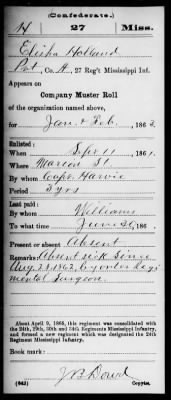 (Confederate.)
H 27 Miss.
Elisha Holland
Pvt, Co. H, 27 Reg't Mississippi Inf.
Appears on
Company Muster Roll
of the organization named above,
for Jan. & Feb., 1863.
Enlisted:
When Sept 11, 1861.
Where Marion St.
By whom Capt. Harvie
Period 3 yrs
Last paid:
By whom Williams
To what time June 30, 186 .
Present or absent Absent
Remarks: Absent sick since
Aug. 28, 1862, by order Regi
mental Surgeon.
About April 9, 1865, this regiment was consolidated with
the 24th, 29th, 30th and 34th Regiments Mississippi Infantry,
and formed a new regiment which was designated the 24th
Regiment Mississippi Infantry.
Book mark:
J B Dowd
(642) Copyist.